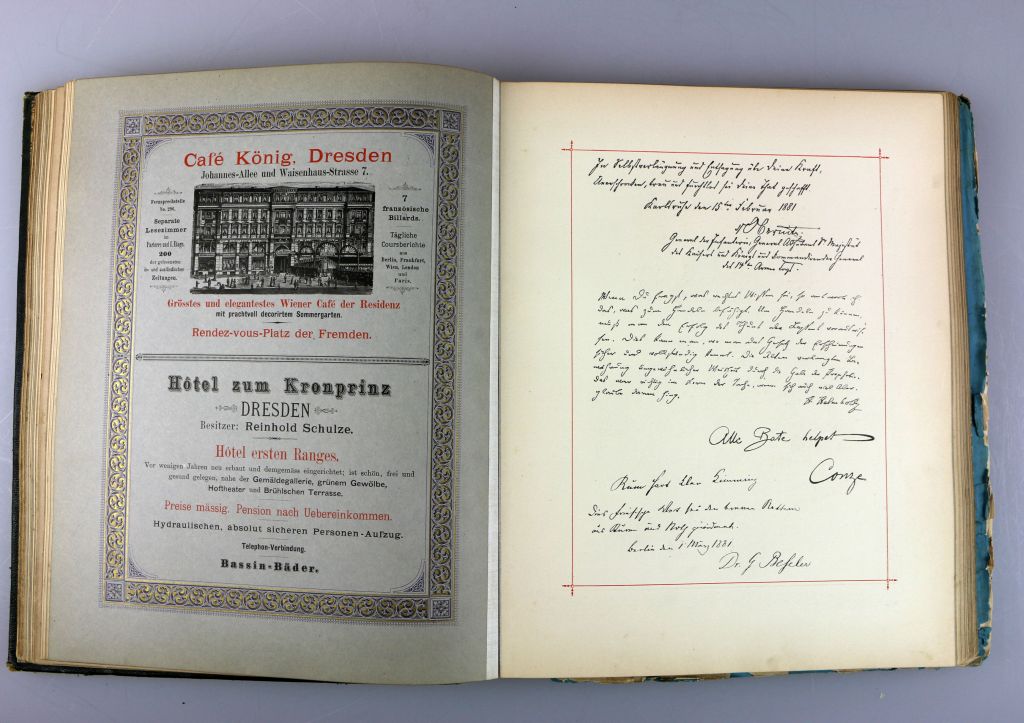 Café König, Dresden
Johannes-Allee und Waisenhaus-Strasse 7.
Fernsprechstelle
No. 296.
Separate
Lesezimmer
im
Parterre und I. Etage.
200
der gelesensten
in- und ausländischen
Zeitungen.
7
französische
Billards.
Tägliche
Coursberichte
aus
Berlin, Frankfurt,
Wien, London
und
Paris.
Grösstes und elegantestes Wiener Café der Residenz
mit prachtvoll decorirtem Sommergarten.
Rendez-vous-Platz der Fremden.
Hôtel zum Kronprinz
DRESDEN
Besitzer: Reinhold Schulze.
Hôtel ersten Ranges,
Vor wenigen Jahren neu erbaut und demgemäss eingerichtet; ist schön, frei und
gesund gelegen, nahe der Gemäldegallerie, grünem Gewölbe,
Hoftheater und Brühlschen Terrasse.
Preise mässig. Pension nach Uebereinkommen.
Hydraulischen, absolut sicheren Personen-Aufzug.
Telephon-Verbindung.
Bassin-Bäder.
In Selbstverläugnung und Entsagung übe deine Kraft,
Unerschrocken, treu und
Karlsruhe den 15ten Februar 1881
General der Infanterie, General Adjutant Sr Majestät
des Kaisers und Königs und kommandirender General
des 14ten Armee Corps.
Wenn Du fragst, was
das, was zum Handeln befähigt. Um Handeln zu können,
muß man den Erfolg der
sehen. Das kann man, wo man das Gesetz der Erscheinungen
sicher und vollständig kennt. Die Alten
durch die Gabe der Prophetie.
das war richtig im Kern der Sache, wenn sich auch viel Aber-
glaube daran hing.
H. Helmholtz
Alle Bate helpet
Conze
Rüm Hart klar Kimming
Dies friesische Wort sei den braven Rettern
als Ruhm und Lob gewidmet.
Berlin den 1 März 1881.
Dr. G Beseler